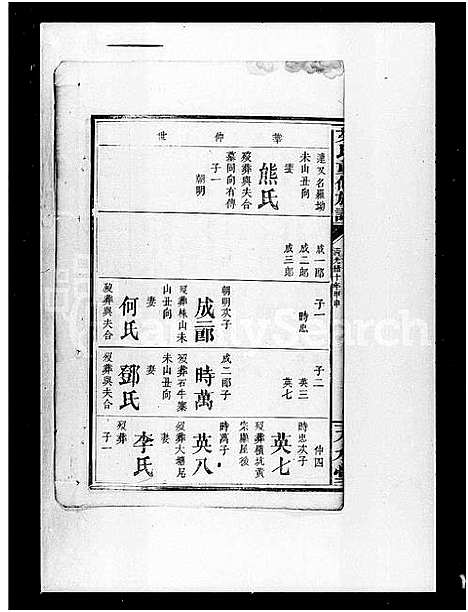 華仲世
蓮又名羅坳
未山丑向
妻
熊氏
歿葬與夫合
墓同向有傳
子一
朝明
成一郎
成二郎
成三郎
子一
時忠
朝明次子
成二郎
歿葬株山未
山丑向
妻
何氏
歿葬與夫合
子二
英三
英七
成二郎子
時萬
歿葬石牛寨
未山丑向
妻
鄧氏
歿葬與夫合
仲四
時忠次子
英七
歿葬橫坑黃
宗顯屋後
時萬子
英八
歿葬大塘尾
妻
李氏
歿葬
子一
FamilySearch